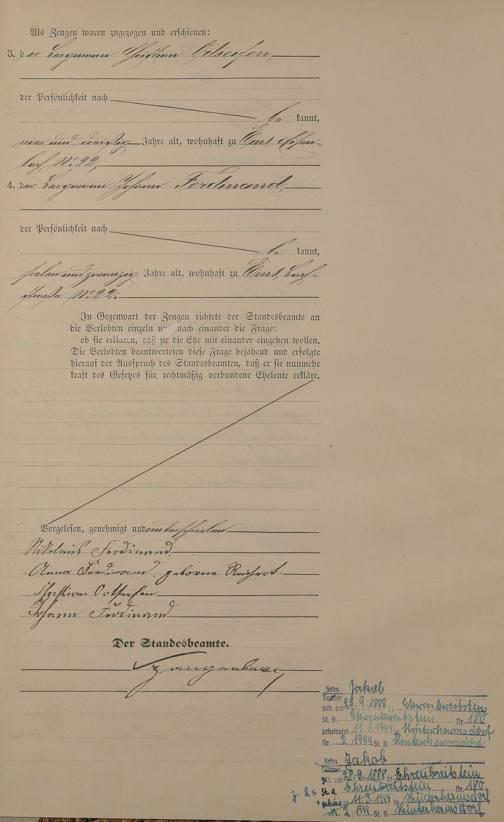 Als Zeugen waren zugezogen und erschienen:
3. der Bergmann Christian Ortseifen,
der Persönlichkeit nach
be kannt,
vier und dreißig Jahre alt, wohnhaft zu Ems,
bach No. 22,
4. der Bergmann Johann Ferdinand,
der Persönlichkeit nach
be kannt,
sieben und zwanzig Jahre alt, wohnhaft zu Ems, Bach-
straße No. 22.
In Gegenwart der Zeugen richtete der Standesbeamte an
die Verlobten einzeln und nach einander die Frage:
ob sie erklären, daß sie die Ehe mit einander eingehen wollen.
Die Verlobten beantworteten diese Frage bejahend und erfolgte
hierauf der Ausspruch des Standesbeamten, daß er sie nunmehr
kraft des Gesetzes für rechtmäßig verbundene Eheleute erkläre.
Vorgelesen, genehmigt und unterschrieben
Nikolaus Ferdinand
Anna Ferdinand, geborene Reichert.
Christian Ortseifen
Johann Ferdinand
Der Standesbeamte.
Sohn Jakob
geb. am 28.9.1888, Ehrenbreitstein
St. A. Ehrenbreitstein Nr. 180
geheiratet 11.2.1944 Hinterhermsdorf
Nr. 2/1944 St. A. Hinterhermsdorf
Sohn Jakob
28.9.1888, Ehrenbreitstein
St. A. Ehrenbreitstein Nr. 180
11.2.1944 Hinterhermsdorf
Hinterhermsdorf